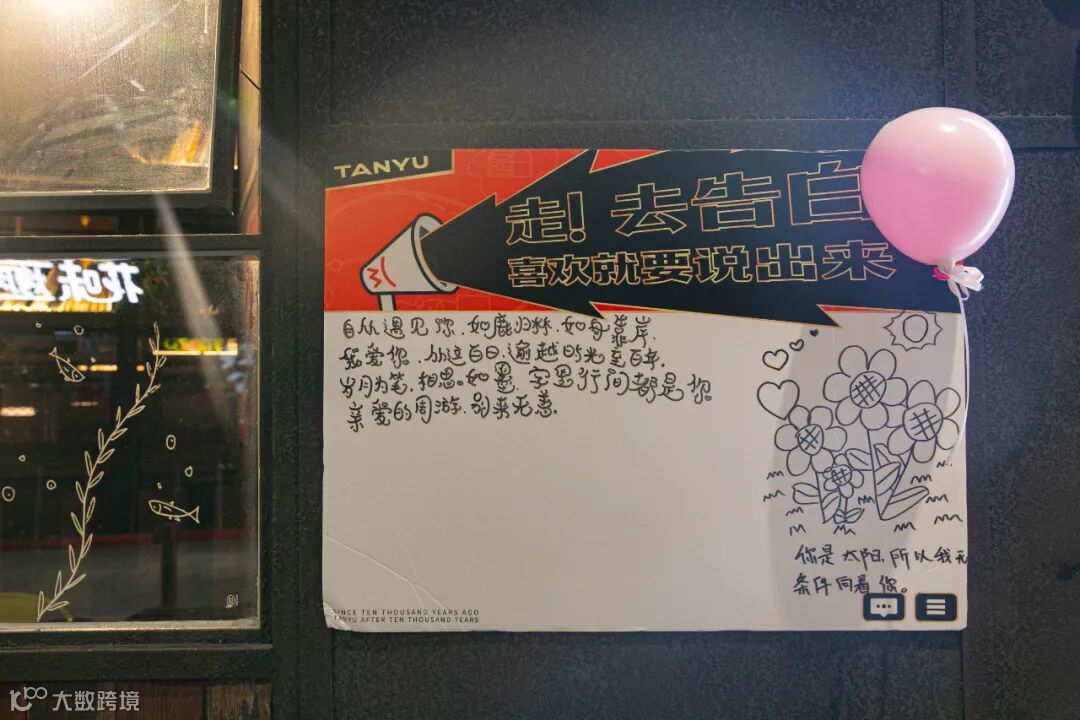 TANYU
走!去告白
喜欢就要说出来
自从遇见你.如鹿归林.如舟靠岸.
我爱你.从这百日.逾越时光至百年.
岁月为笔.相思如墨.字里行间都是你
亲爱的周游.别来无恙.
你是太阳.所以我无
条件向着你。
SINCE TEN THOUSAND YEARS AGO
TANYU AFTER TEN THOUSAND YEARS
花味
大数跨境